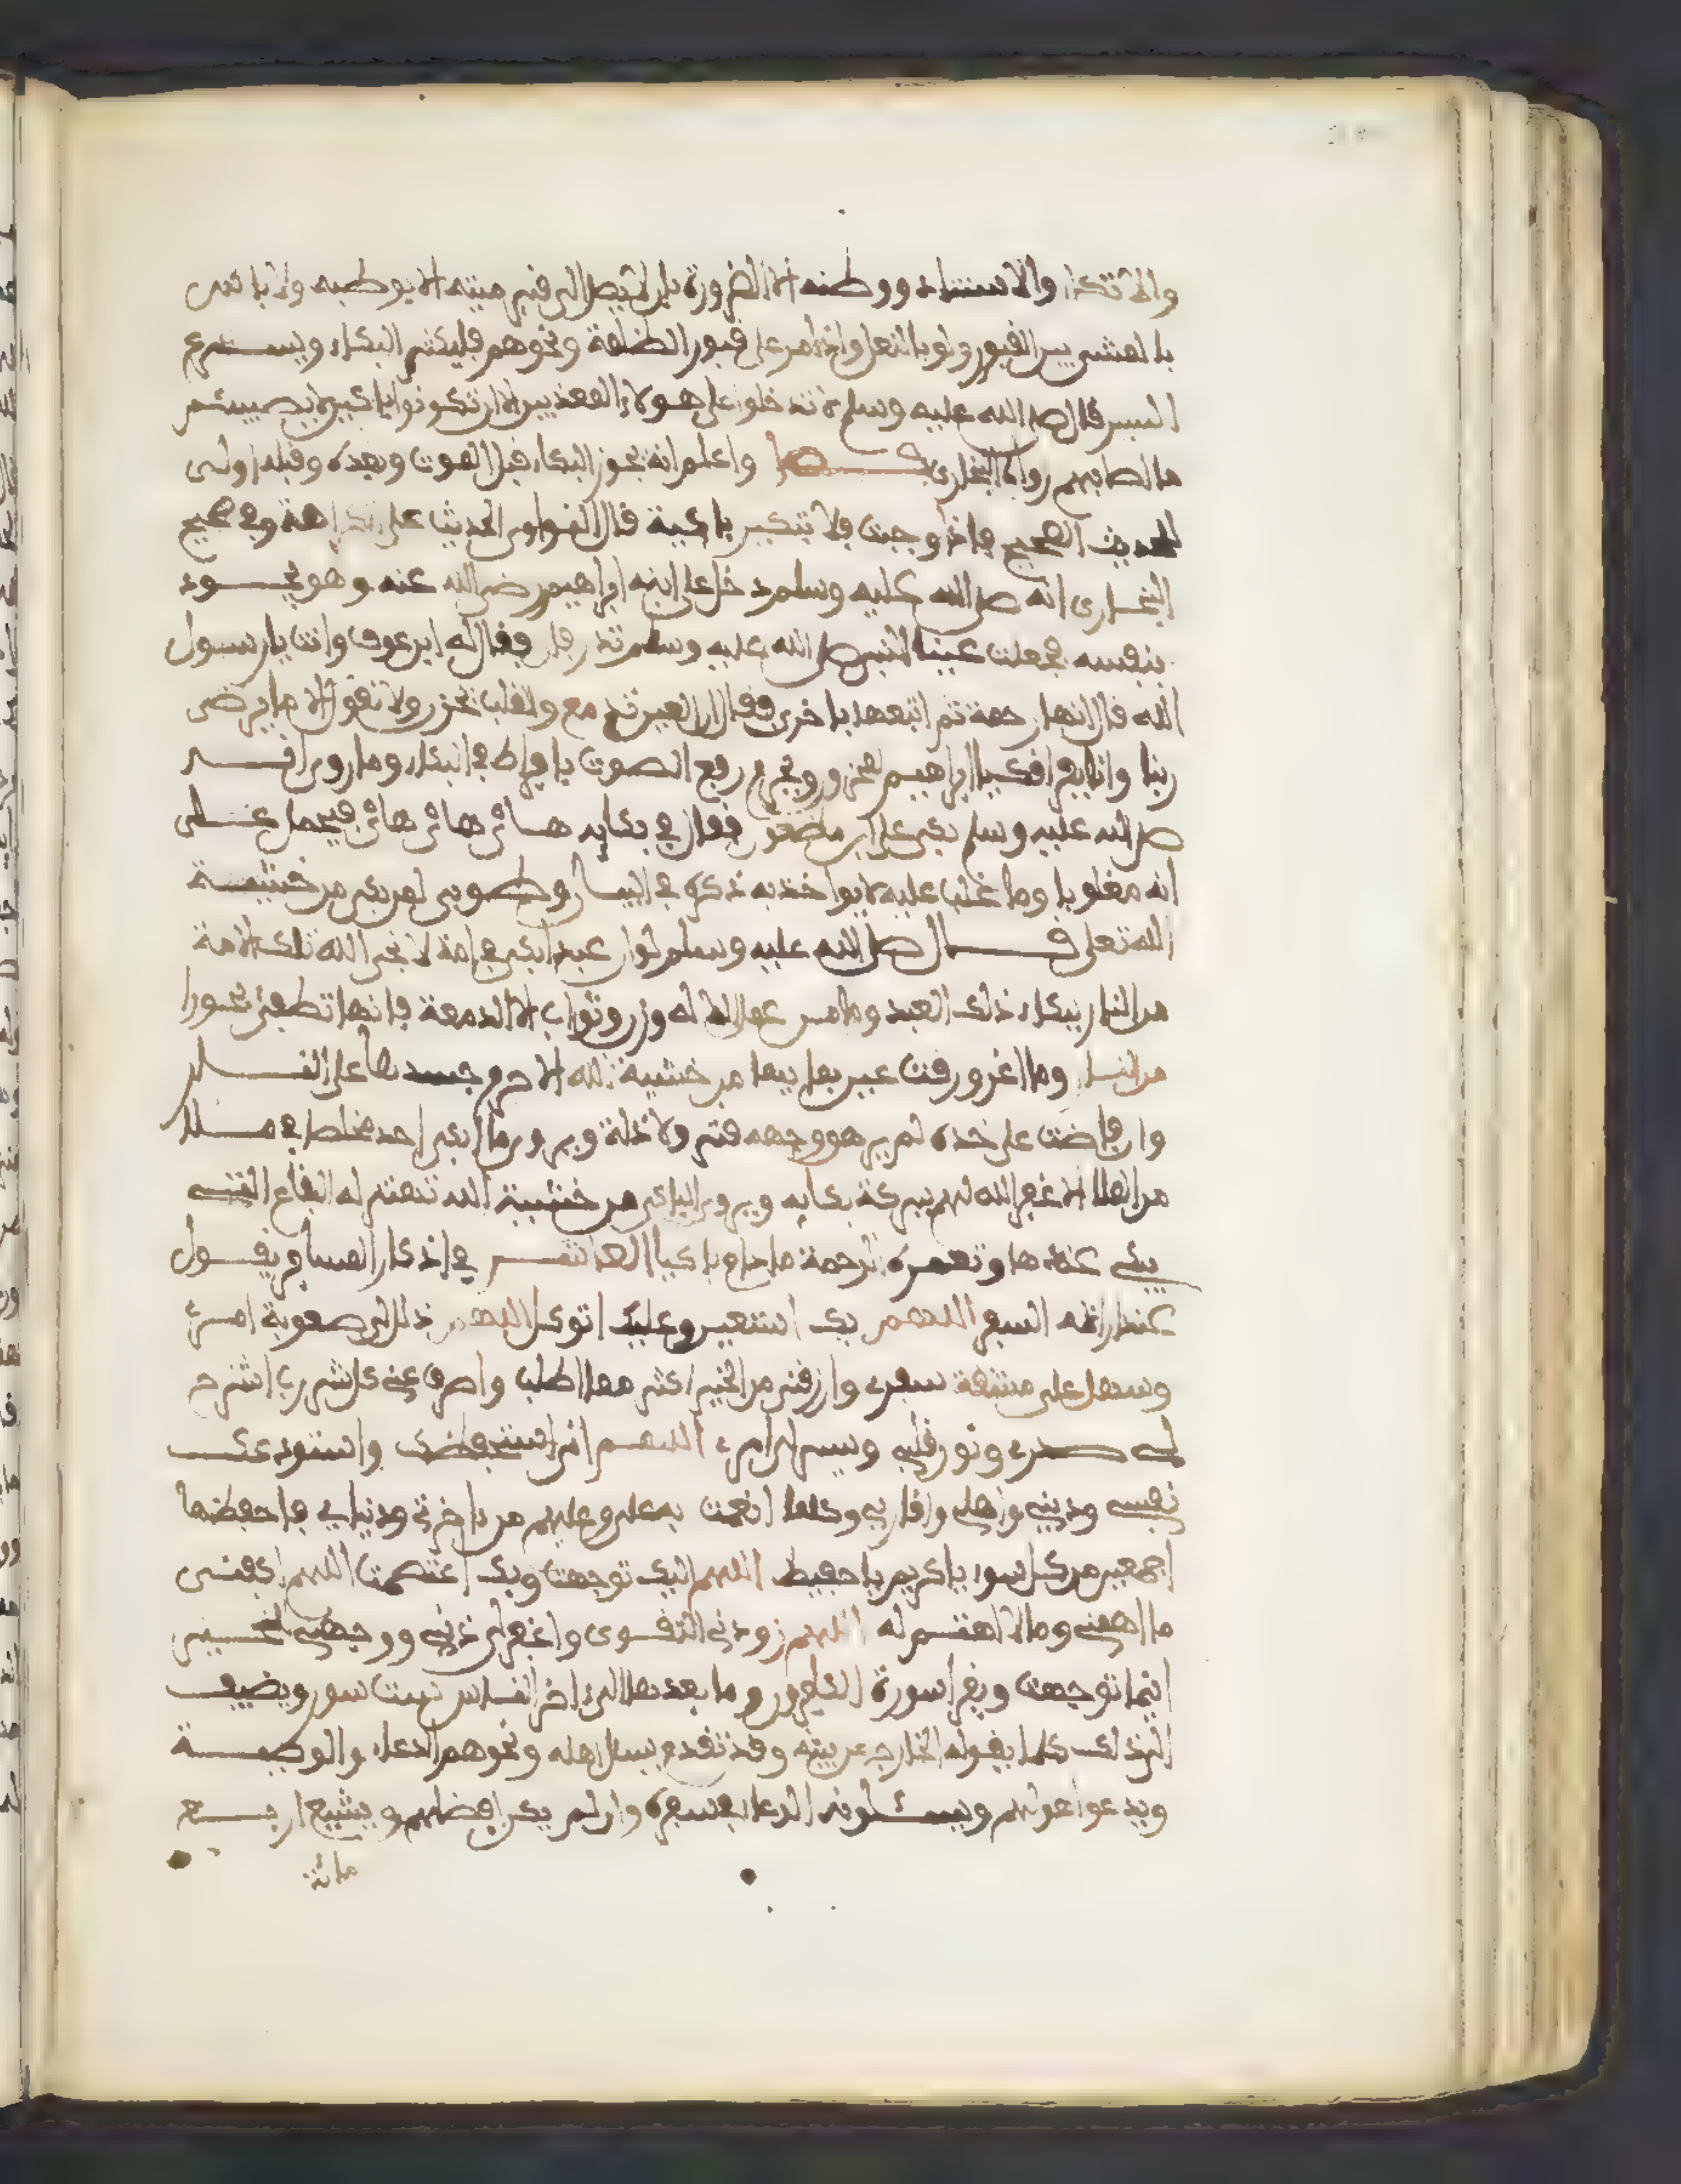 والاتكاء والاستناد ووطئه الا لضرورة بان لا يصل الى قبر ميته الا بوطئه ولا باس
بالمشي بين القبور ولو بالنعل واذا مر على قبور الظلمة ونحوهم فليكثر البكاء ويسرع
السير قال صلى الله عليه وسلم لا تدخلوا على هؤلاء المعذبين الا ان تكونوا باكين لا يصيبكم
ما اصابهم رواه البخاري واعلم انه يجوز البكاء قبل الموت وبعده وقبله اولى
لحديث الصحيح فاذا وجبت فلا تبكين باكية قال النواوي الحديث على الكراهة وفي صحيح
البخاري انه صلى الله عليه وسلم دخل على ابنه ابراهيم رضي الله عنه وهو يجود
بنفسه فجعلت عينا النبي صلى الله عليه وسلم تذرفان فقال له ابن عوف وانت يا رسول
الله قال انها رحمة ثم اتبعها باخرى فقال ان العين تدمع والقلب يحزن ولا نقول الا ما يرضي
ربنا وانا بفراقك يا ابراهيم لمحزونون ويحرم رفع الصوت بافراط في البكاء وما روي انه
صلى الله عليه وسلم بكى على ابن مظعون فقال في بكايه هاي هاي هاي فيحمل على
انه مغلوبا وما غلب عليه لا يواخذ به ذكره في البيان وطوبى لمن بكى من خشية
الله تعلى قال صلى الله عليه وسلم لو ان عبدا بكى في امة لانجى الله تلك الامة
من النار ببكاء ذلك العبد وما من عمل الا له وزن وثواب الا الدمعة فانها تطفئ بحورا
من النار وما اغرورقت عين بمايها من خشية الله الا حرم جسدها على النار
وان فاضت على خده لم يرهق وجهه قتر ولا ذلة ويروى ما بكى احد مخلصا في ملا
من الملا الا غفر الله لهم ببركة بكايه ويروى الباكي من خشية الله تهتز له البقاع التي
يبكي عندها وتغمره الرحمة ما دام باكيا في اذكار المسافر يقول
عند ارادة السفر اللهم بك استعين وعليك اتوكل اللهم ذلل لي صعوبة امري
وسهل علي مشقة سفري وارزقني من الخير اكثر مما اطلب واصرف عني كل شر رب اشرح
لي صدري ونور قلبي ويسر لي امري اللهم اني استحفظك واستودعك
نفسي وديني واهلي واقاربي وكلما انعمت به علي وعليهم من اخرة ودنيا فاحفظنا
اجمعين من كل سوء يا كريم يا حفيظ اللهم اليك توجهت وبك اعتصمت اللهم اكفني
ما اهمني وما لا اهتم له اللهم زودني التقوى واغفر لي ذنبي ووجهني للخير
اينما توجهت ويقرا سورة الكافرون وما بعدها الى اخر الناس تبت سور ويضيف
الى ذلك كلما يقوله الخارج من بيته وقد تقدم يسال اهله ونحوهم الدعاء والوصية
ويدعوا هو لهم ويسئلونه الدعاء بسفره وان لم يكن افضلهم ويشيع اربع
مائة